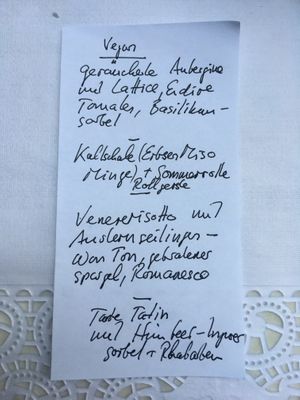 Vegan
geräucherte Aubergine
mit Lattice, Endivie
Tomaten, Basilikum-
sorbet
Kaltschale (Erbsen Miso
Minze) + Sommerrolle
Rollgerste
Venererisotto mit
Austernseitlingen-
Wan Ton, gebratener
spargel, Romanesco
Tarte Tatin
mit Himbeer-Ingwer
sorbet + Rhabarber